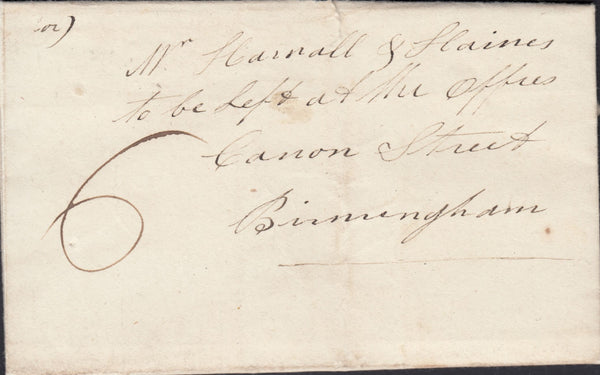 or)
Mr Harnall & Haines
to be Left at the Offices
6
Canon Street
Birmingham